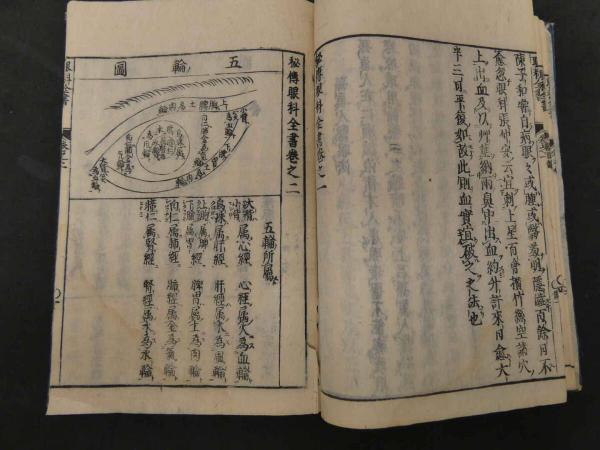 陳子和常自病眼々或腫或翳羞明隱澁百餘日不
愈忽眼科張仲安云宜刺上星百會攢竹絲空諸穴
上出血及以草莖納兩鼻中出血約升許來日愈大
半三日平復如故此則血實宜破之之法也
秘傳眼科全書卷之一
秘傳眼科全書卷之二
五輪圖
上胞脾土為肉輪
五輪所屬
大眥小眥屬心經 心經屬火為血輪
烏珠屬肝經 肝經屬木為風輪
上胞下瞼屬脾胃 脾胃屬土為肉輪
白仁屬肺經 肺經屬金為氣輪
瞳仁屬腎經 腎經屬水為水輪
眼科全書
卷之二